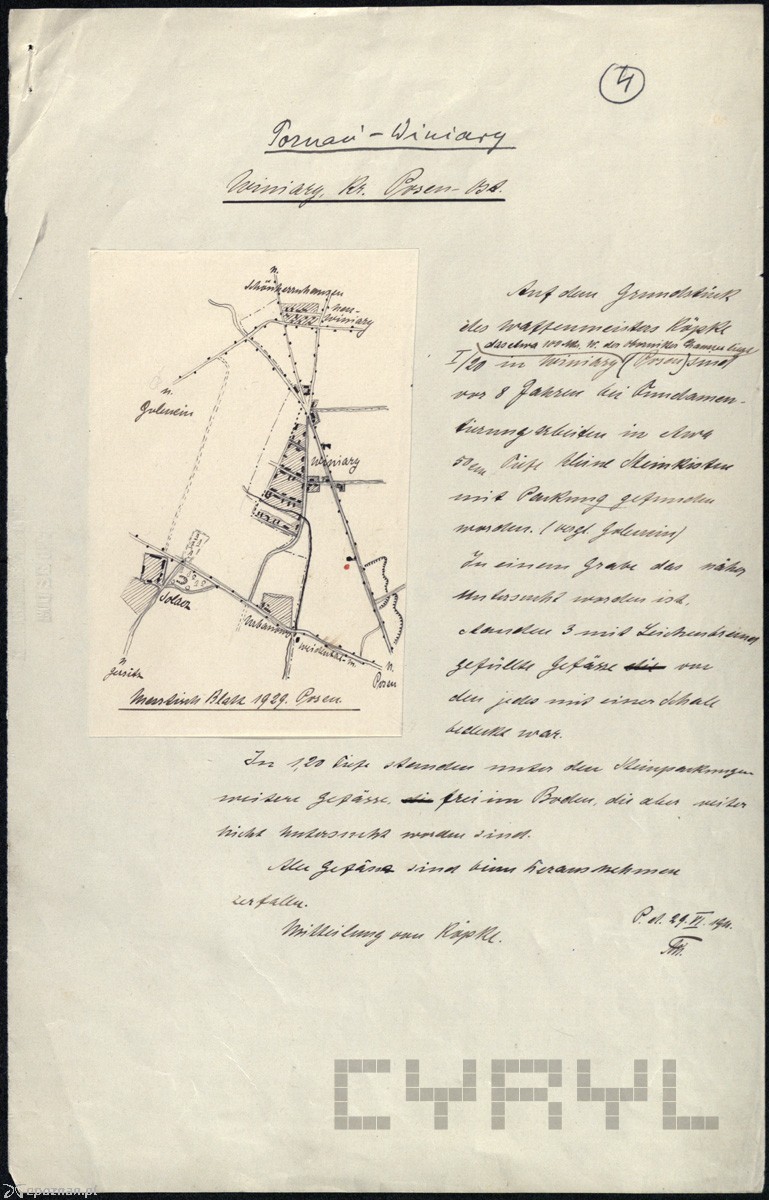 4
Poznań – Winiary
Winiary, Kr. Posen-Ost.
n.
Schönherrnhausen
Neu-
Winiary
n.
Golencin
Winiary
Solacz
Urbanowo
n.
Jersitz
n.
Posen
Messtisch Blatt 1929. Posen.
Auf dem Grundstück
des Waffenmeisters Köpke
I/20 in Winiary (Posen) sind
vor 8 Jahren bei Fundamen-
tierungarbeiten in etwa
50 cm Tiefe kleine Steinkisten
mit Packung gefunden
worden. (vergl. Golencin)
In einem Grabe das näher
untersucht worden ist,
standen 3 mit Leichenbrand
gefüllte Gefässe die von
den jedes mit einer Schale
bedeckt war.
In 1,20 Tiefe standen unter den Steinpackungen
weitere Gefässe, die frei im Boden, die aber weiter
nicht untersucht worden sind.
Alle Gefässe sind beim Herausnehmen
zerfallen.
Mitteilung von Köpke.
P. d. 29. VI.
CYRYL
epoznan.pl